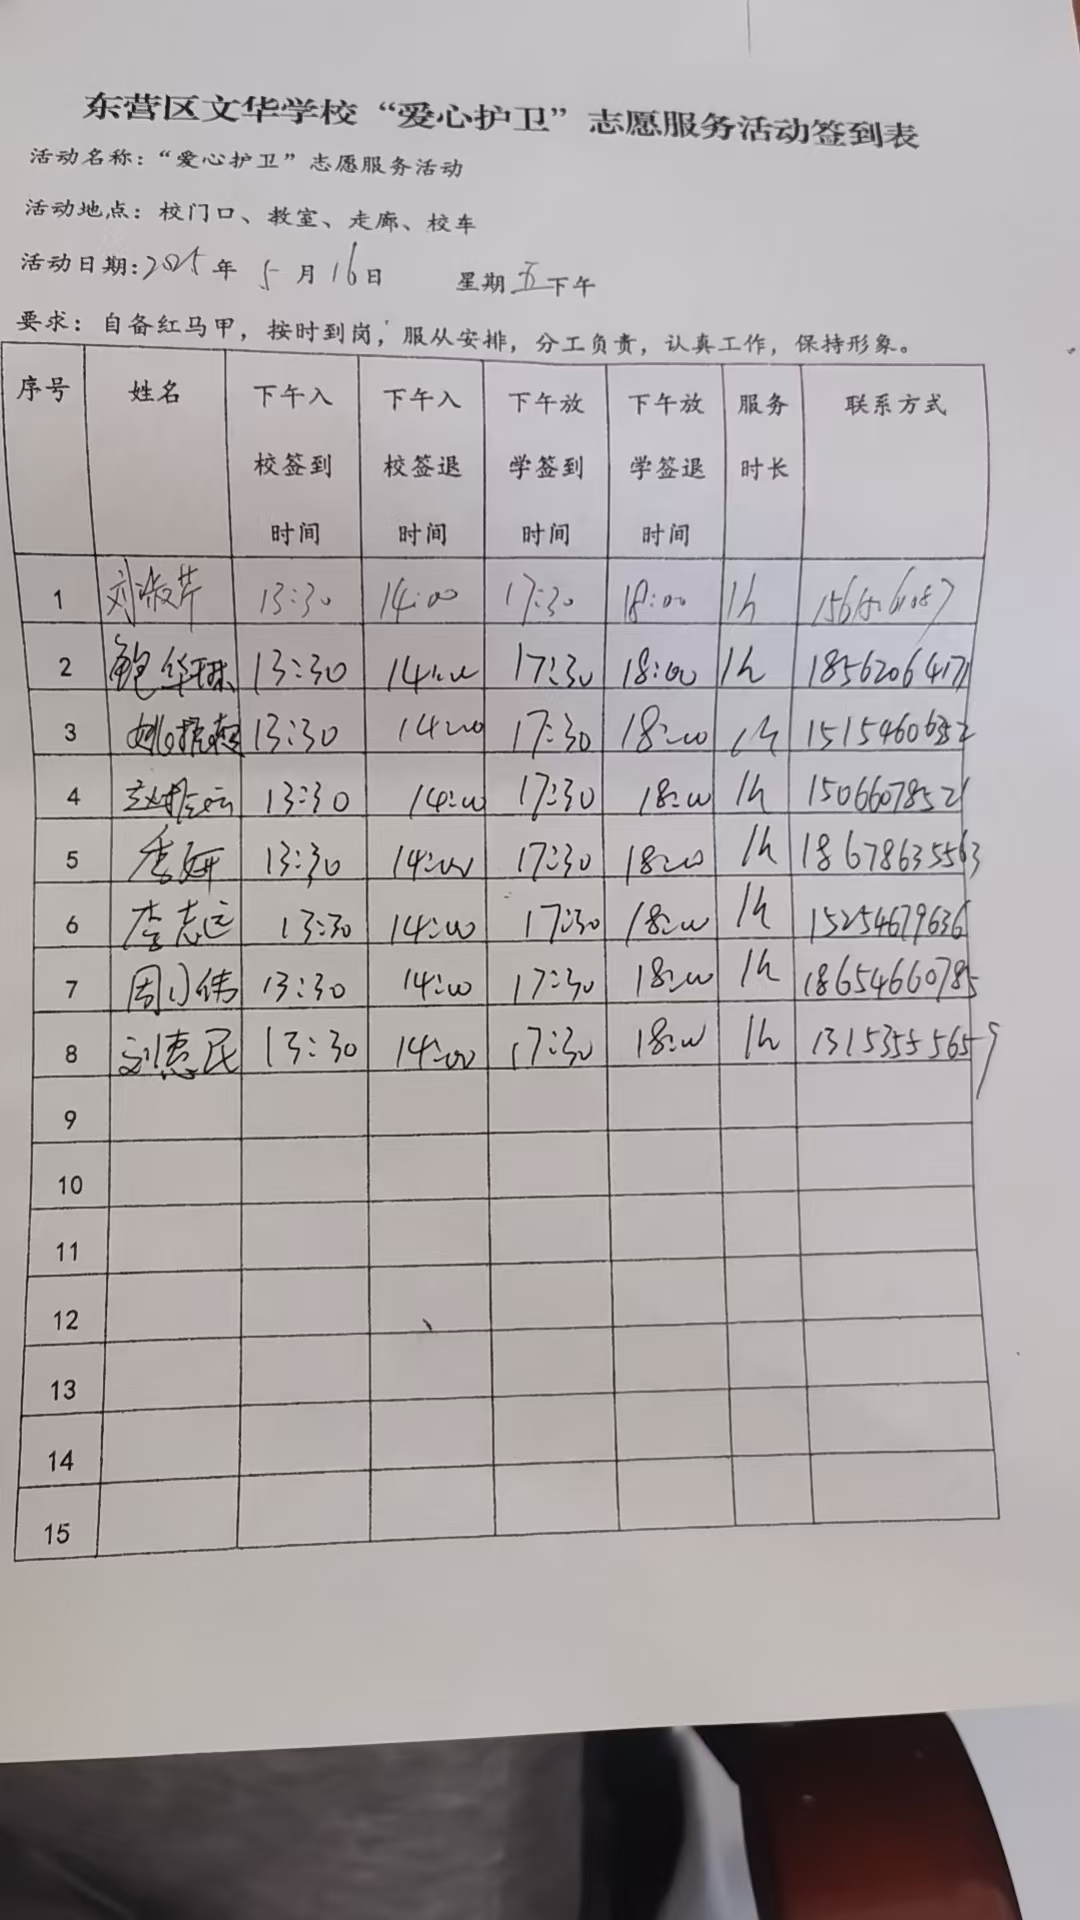 东营区文华学校“爱心护卫”志愿服务活动签到表
活动名称：“爱心护卫”志愿服务活动
活动地点：校门口、教室、走廊、校车
活动日期：2025年 5月16日 星期五下午
要求：自备红马甲，按时到岗，服从安排，分工负责，认真工作，保持形象。
序号 姓名 下午入校签到时间 下午入校签退时间 下午放学签到时间 下午放学签退时间 服务时长 联系方式
1 刘淑芹 13:30 14:00 17:30 18:00 1h
2 鲍华琳 13:30 14:00 17:30 18:00 1h 18562064171
3 13:30 14:00 17:30 18:00 1h 15154606352
4 13:30 14:00 17:30 18:00 1h 15066078521
5 季妍 13:30 14:00 17:30 18:00 1h 18678635563
6 李志远 13:30 14:00 17:30 18:00 1h 15254679636
7 周小伟 13:30 14:00 17:30 18:00 1h 18654660785
8 刘惠民 13:30 14:00 17:30 18:00 1h 13153555659
9
10
11
12
13
14
15